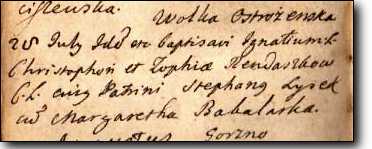 ciszewska.
Wolka Ostrożenska
28 July Idd etc baptisavi Ignatium L.
Christophori et Zophiæ Rendaszkow
C. L. eius Patrini Stephanus Lysek
cū Margaretha Babalarka.
Gorzno